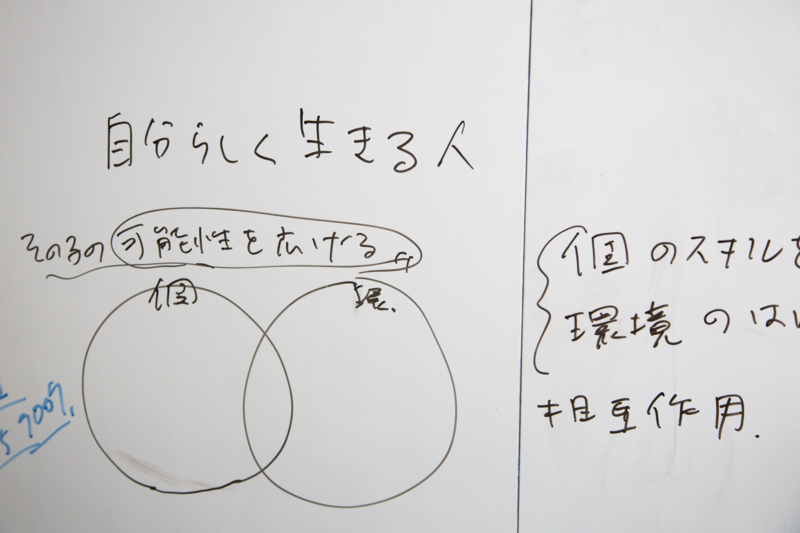 自分らしく生きる人
その子の可能性を広げる
個
環
個のスキルを
環境のはい
相互作用.